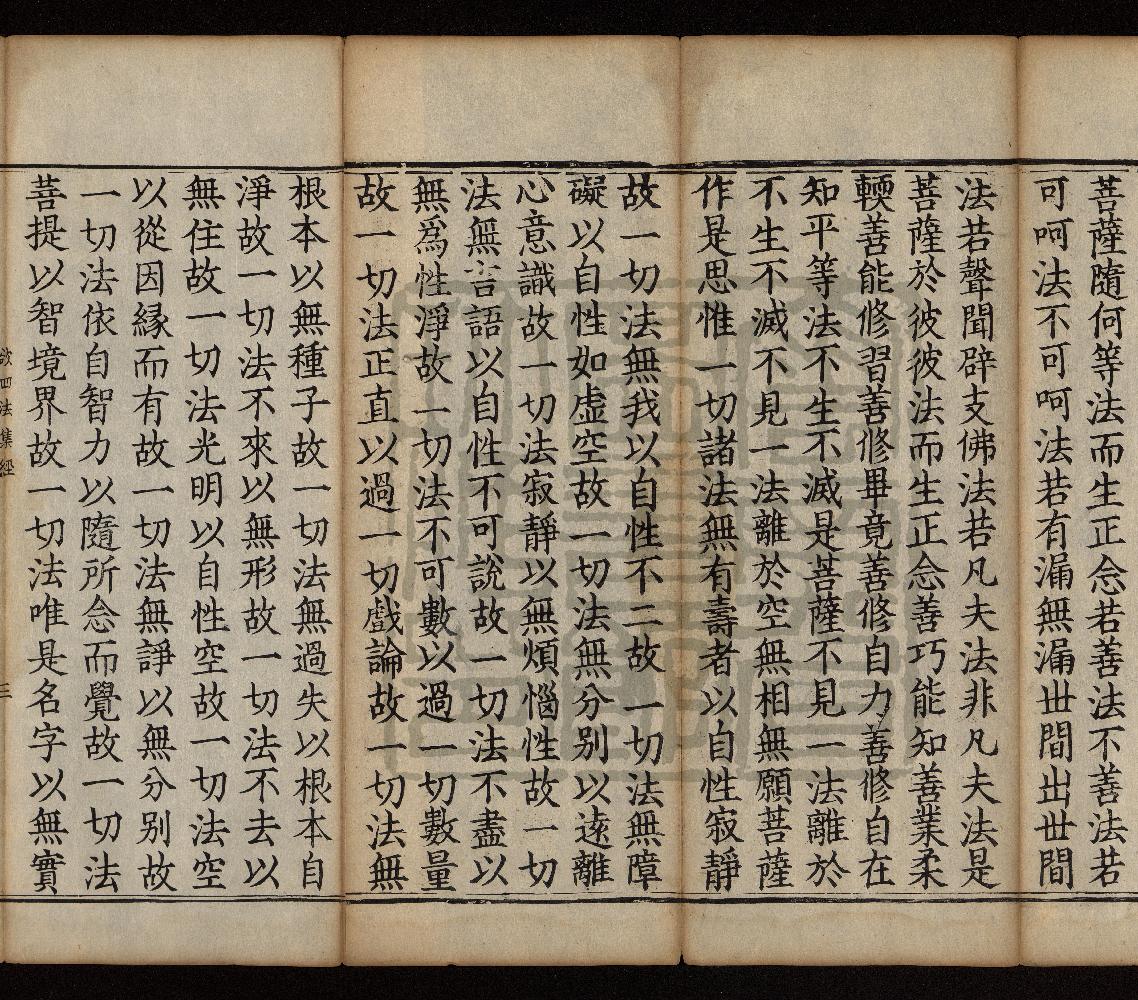 菩薩隨何等法而生正念若善法不善法若
可呵法不可呵法若有漏無漏世間出世間
法若聲聞辟支佛法若凡夫法非凡夫法是
菩薩於彼彼法而生正念善巧能知善業柔
輭善能修習善修畢竟善修自力善修自在
知平等法不生不滅是菩薩不見一法離於
不生不滅不見一法離於空無相無願菩薩
作是思惟一切諸法無有壽者以自性寂靜
故一切法無我以自性不二故一切法無障
礙以自性如虛空故一切法無分别以遠離
心意識故一切法寂靜以無煩惱性故一切
法無言語以自性不可說故一切法不盡以
無為性淨故一切法不可數以過一切數量
故一切法正直以過一切戲論故一切法無
根本以無種子故一切法無過失以根本自
淨故一切法不來以無形故一切法不去以
無住故一切法光明以自性空故一切法空
以從因緣而有故一切法無諍以無分别故
一切法依自智力以隨所念而覺故一切法
菩提以智境界故一切法唯是名字以無實
四法集經
三